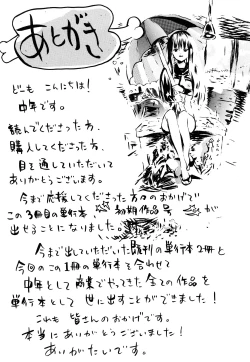 あとがき
どーも こんにちは!
中年です。
読んでくださった方、
購入してくださった方、
目を通していただいて
ありがとうございます。
今まで応援してくださった方々のおかげで
この3冊目の単行本、初期作品号が
出せることになりました。
今まで出していただいた既刊の単行本2冊と
今回のこの1冊の単行本を合わせて
中年として商業でやってきた全ての作品を
単行本として世に出すことができました!
これも皆さんのおかげです。
本当にありがとうございました!
ありがたいです。